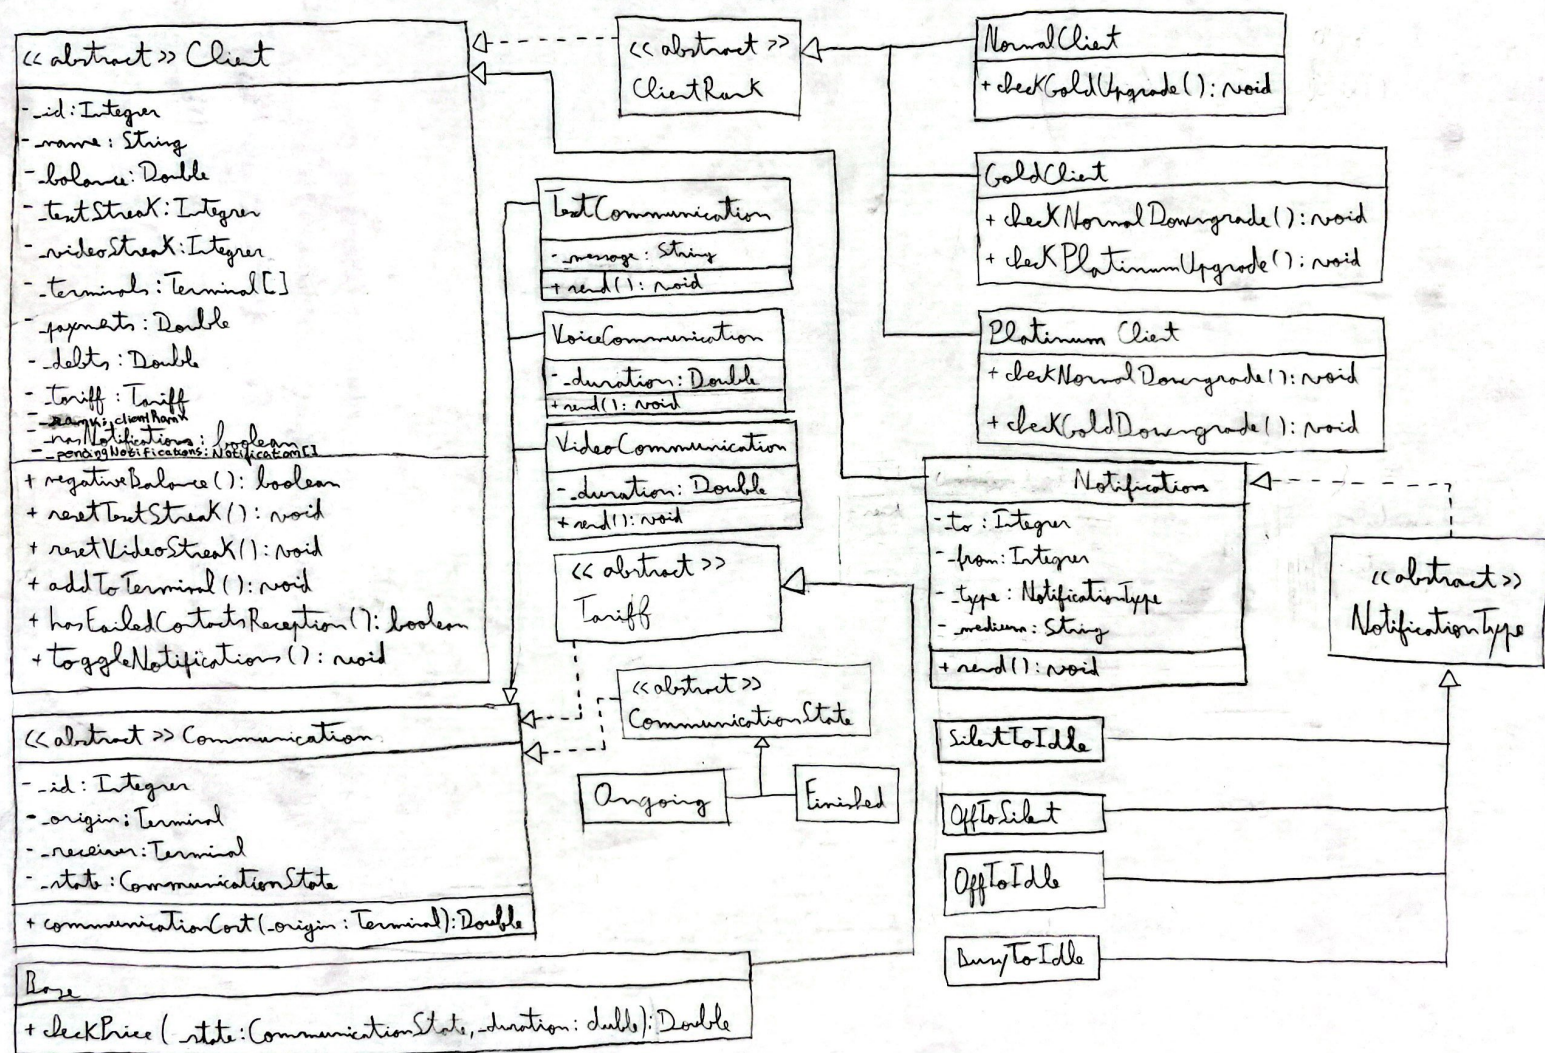 << abstract >> Client
- _id: Integer
- _name: String
- _balance: Double
- _textStreak: Integer
- _videoStreak: Integer
- _terminals: Terminal[]
- _payments: Double
- _debts: Double
- _tariff: Tariff
- _rank: clientRank
- _hasNotifications: boolean
- _pendingNotifications: Notification[]
+ negativeBalance(): boolean
+ resetTextStreak(): void
+ resetVideoStreak(): void
+ addToTerminal(): void
+ hasFailedContactsReception(): boolean
+ toggleNotifications(): void
<< abstract >>
ClientRank
NormalClient
+ checkGoldUpgrade(): void
GoldClient
+ checkNormalDowngrade(): void
+ checkPlatinumUpgrade(): void
Platinum Client
+ checkNormalDowngrade(): void
+ checkGoldDowngrade(): void
TextCommunication
- _message: String
+ send(): void
VoiceCommunication
- _duration: Double
+ send(): void
VideoCommunication
- _duration: Double
+ send(): void
<< abstract >>
Tariff
<< abstract >>
CommunicationState
Ongoing
Finished
Notifications
- _to: Integer
- _from: Integer
- _type: NotificationType
- _medium: String
+ send(): void
<< abstract >>
NotificationType
SilentToIdle
OffToSilent
OffToIdle
BusyToIdle
<< abstract >> Communication
- _id: Integer
- _origin: Terminal
- _receiver: Terminal
- _state: CommunicationState
+ communicationCost(_origin: Terminal): Double
Base
+ checkPrice(_state: CommunicationState, _duration: duble): Double